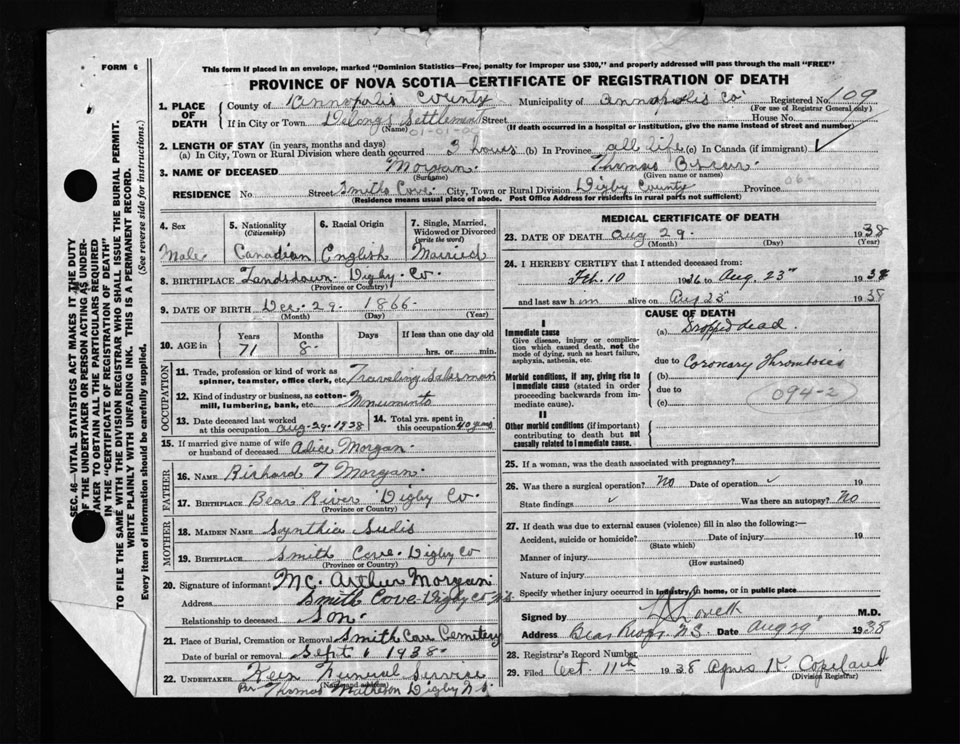 FORM 6
This form if placed in an envelope, marked "Dominion Statistics—Free, penalty for improper use $300," and properly addressed will pass through the mail "FREE"
PROVINCE OF NOVA SCOTIA—CERTIFICATE OF REGISTRATION OF DEATH
1. PLACE OF DEATH
County of Annapolis County Municipality of Annapolis Co. Registered No. 109
(For use of Registrar General only)
If in City or Town Delongs Settlement Street House No.
(Name) 01-01-00 (If death occurred in a hospital or institution, give the name instead of street and number)
2. LENGTH OF STAY (in years, months and days)
(a) In City, Town or Rural Division where death occurred 3 hours (b) In Province all life (c) In Canada (if immigrant) ✓
3. NAME OF DECEASED Morgan Thomas Oscar
(Surname) (Given name or names)
RESIDENCE No. Street Smiths Cove City, Town or Rural Division Digby County Province 06-
(Residence means usual place of abode. Post Office Address for residents in rural parts not sufficient)
SEC. 46—VITAL STATISTICS ACT MAKES IT THE DUTY
OF THE UNDERTAKER OR PERSON ACTING AS UNDER-
TAKER TO OBTAIN ALL THE PARTICULARS REQUIRED
IN THE "CERTIFICATE OF REGISTRATION OF DEATH"
TO FILE THE SAME WITH THE DIVISION REGISTRAR WHO SHALL ISSUE THE BURIAL PERMIT.
WRITE PLAINLY WITH UNFADING INK. THIS IS A PERMANENT RECORD.
Every item of information should be carefully supplied. (See reverse side for instructions.)
4. Sex
Male
5. Nationality
(Citizenship)
Canadian
6. Racial Origin
English
7. Single, Married, Widowed or Divorced
(write the word)
Married
8. BIRTHPLACE Landsdown Digby Co.
(Province or Country)
9. DATE OF BIRTH Dec. 29. 1866
(Month) (Day) (Year)
10. AGE in Years Months Days If less than one day old
71 8 hrs. or min.
OCCUPATION
11. Trade, profession or kind of work as
spinner, teamster, office clerk, etc. Traveling Salesman
12. Kind of industry or business, as cotton-
mill, lumbering, bank, etc. Monuments
13. Date deceased last worked
at this occupation Aug-29-1938
14. Total yrs. spent in
this occupation 40 years
15. If married give name of wife
or husband of deceased Alice Morgan.
FATHER
16. NAME Richard T Morgan.
17. BIRTHPLACE Bear River Digby Co.
(Province or Country)
MOTHER
18. MAIDEN NAME Synthia Sulis
19. BIRTHPLACE Smith Cove. Digby Co
(Province or Country)
20. Signature of informant Mc. Arthur Morgan
Address Smith Cove Digby Co N.S
Relationship to deceased Son.
21. Place of Burial, Cremation or Removal Smith Cove Cemetery
Date of burial or removal Sept 1 1938.
22. UNDERTAKER Funeral Service
(Name and address)
Per Thomas Matheson Digby N.S.
MEDICAL CERTIFICATE OF DEATH
23. DATE OF DEATH Aug 29. 1938
(Month) (Day) (Year)
24. I HEREBY CERTIFY that I attended deceased from:
Feb. 10 1936 to Aug. 23" 1938
and last saw him alive on Aug 23" 1938
CAUSE OF DEATH
I
Immediate cause
Give disease, injury or complica-
tion which caused death, not the
mode of dying, such as heart failure,
asphyxia, asthenia, etc.
(a) Dropped dead.
due to
Morbid conditions, if any, giving rise to
immediate cause (stated in order
proceeding backwards from im-
mediate cause).
(b) Coronary Thrombosis
due to
(c)
094-2
II
Other morbid conditions (if important)
contributing to death but not
causally related to immediate cause.
25. If a woman, was the death associated with pregnancy?
26. Was there a surgical operation? No Date of operation ✓ 19
State findings ✓ Was there an autopsy? No
27. If death was due to external causes (violence) fill in also the following:—
Accident, suicide or homicide? Date of injury 19
(State which)
Manner of injury
(How sustained)
Nature of injury
Specify whether injury occurred in industry, in home, or in public place
Signed by Lovett M.D.
Address Bear River N.S. Date Aug 29" 1938
28. Registrar's Record Number
29. Filed Oct. 11th 1938 Agnes K. Copeland
(Division Registrar)